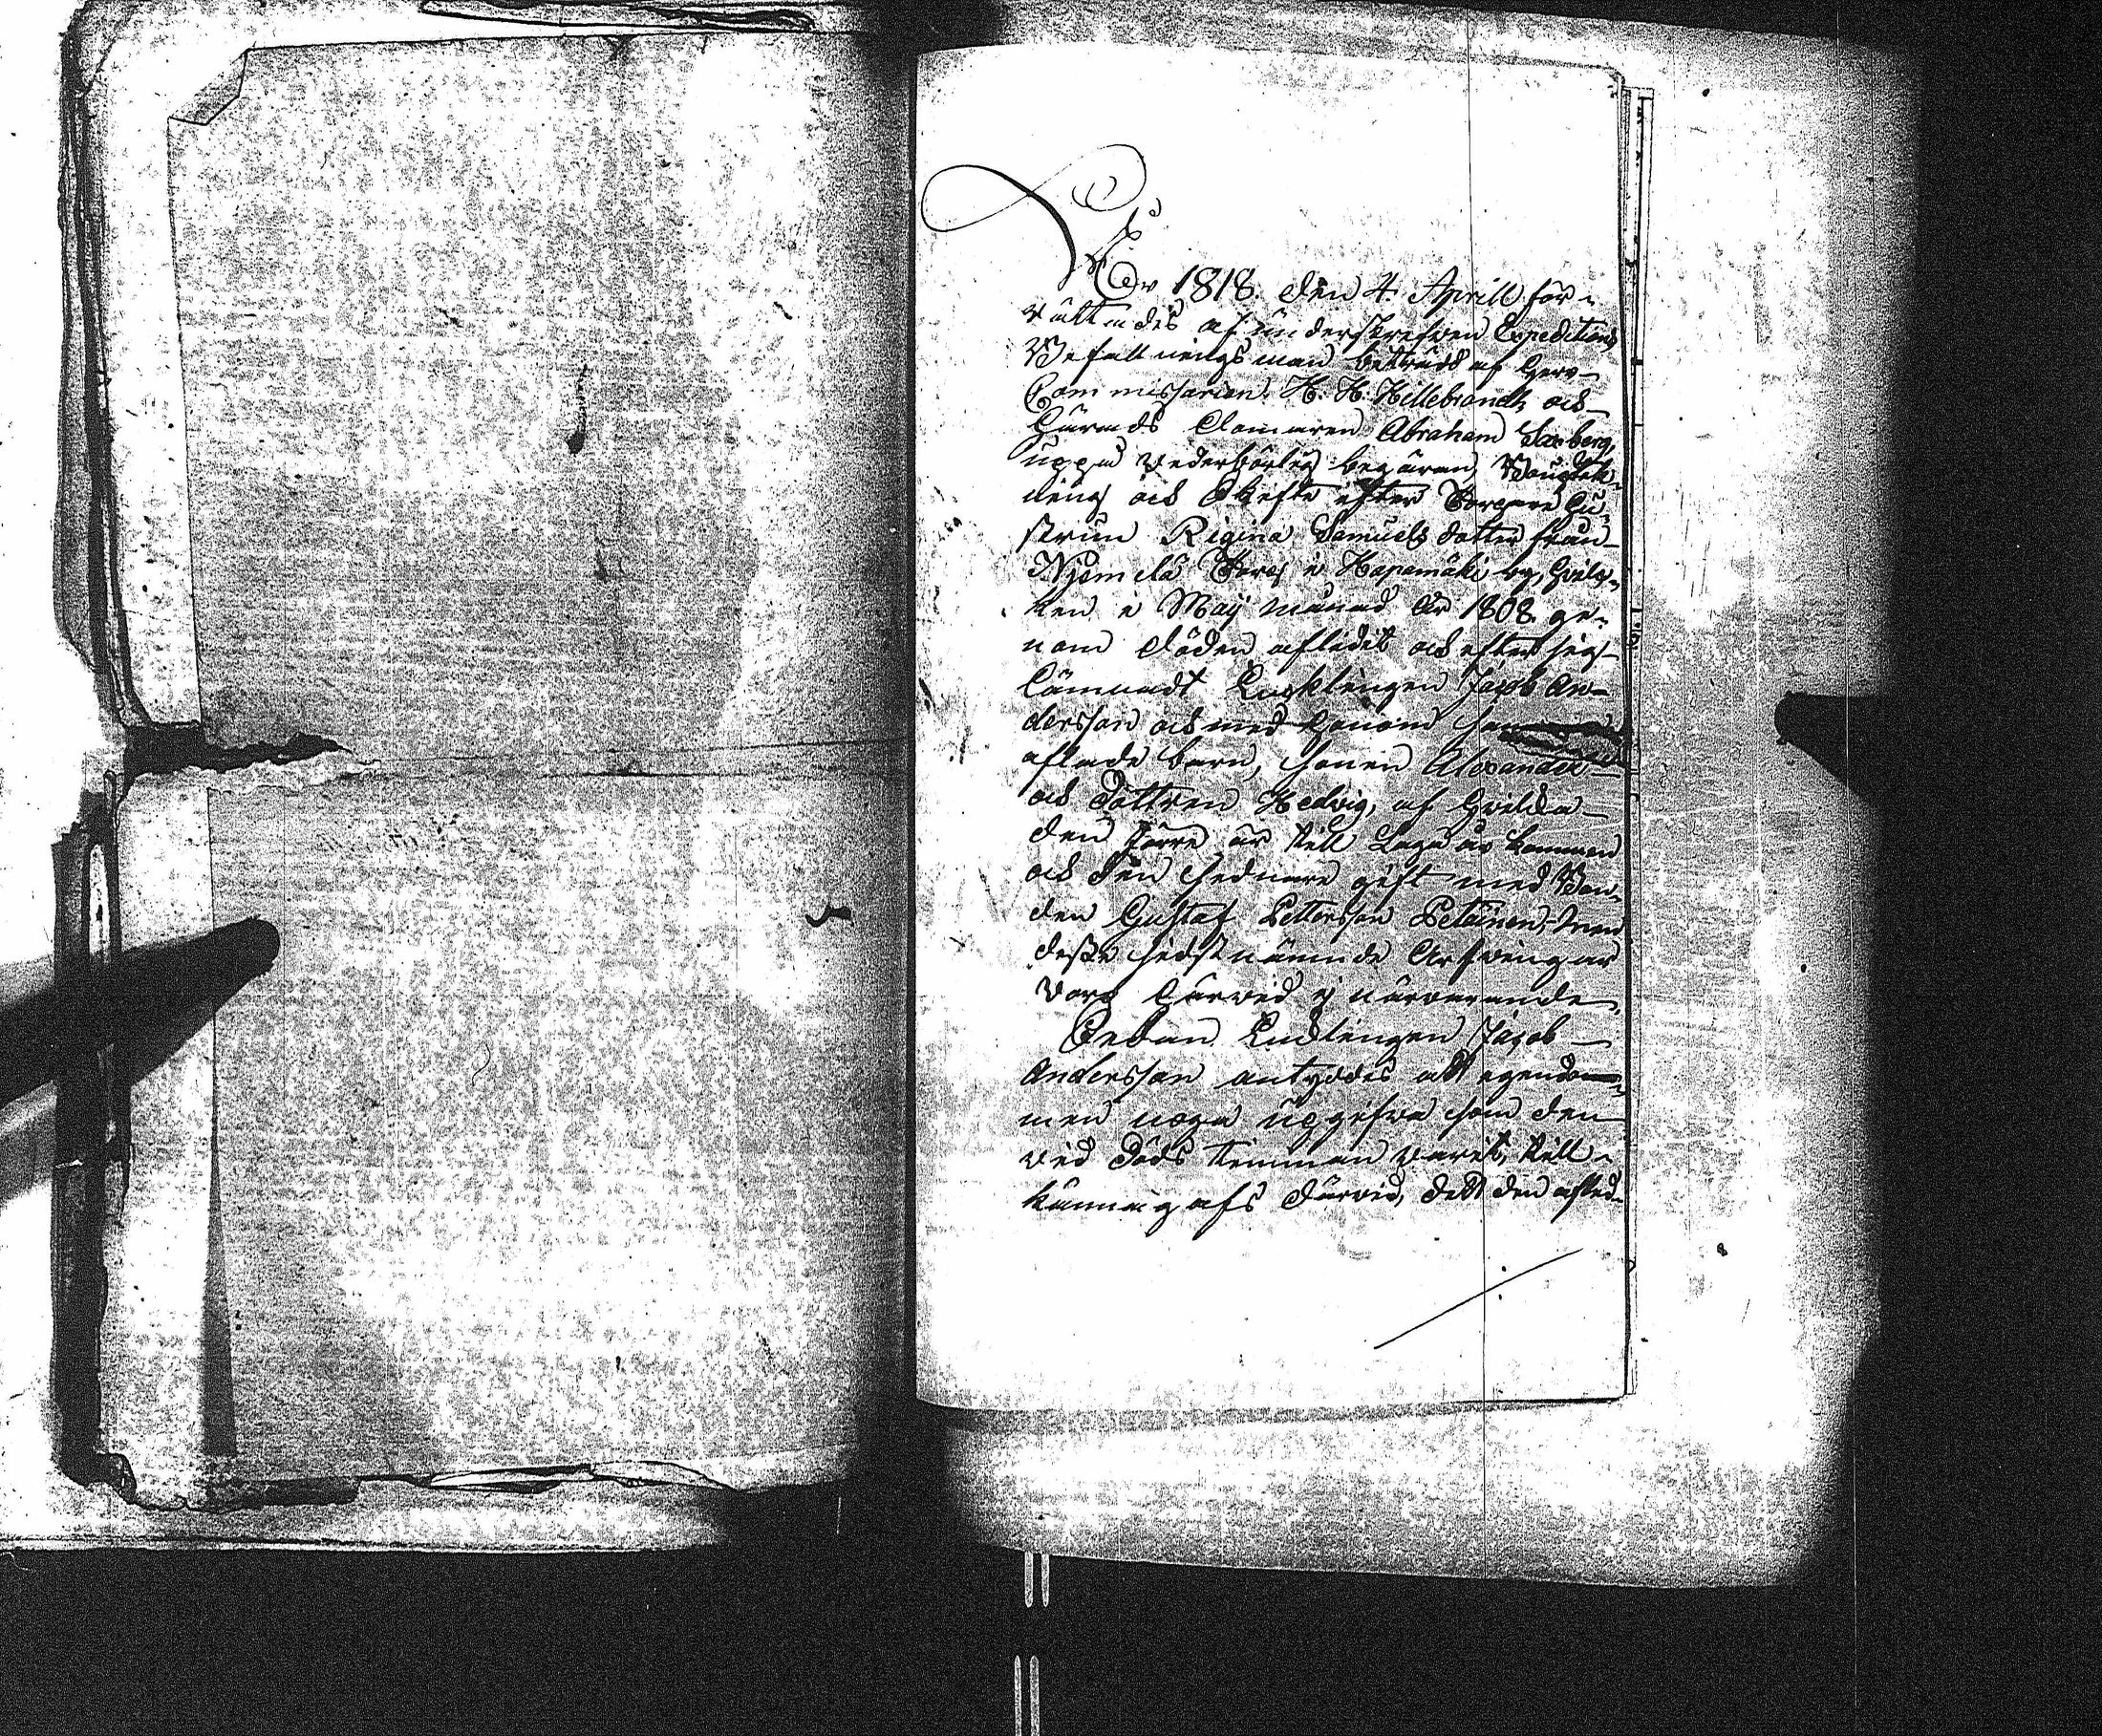 År 1818. den 4. Aprill för-
rättades af underskrefven Expeditions
Befallningsman biträdd af Herr
Commissarien H. H. Hillebrandt och
Härads Domaren Abraham Saxberg,
uppå vederbörlig begäran, Bouptek-
ning och Skifte efter Torpare Hu-
strun Regina Samuels dotter från
Njemelä Torp i Hapamäki by, hvil-
ken i Maij månad år 1808. ge-
nom döden aflidit och efter sig
lämnadt Enklingen Jacob An-
dersson och med honom
aflade barn, sonen Alexander
och Dottren Hedvig, af hvilka
den förre är till Laga år kommen
och den sednare gift med Bon-
den Gustaf Pettersson Petäinen, men
desse sidstnämnde Arfvingar
voro härvid ej närvarande.
Sedan Enklingen Jacob
Andersson antyddes att egendom-
men noga uppgifva som den
vid döds timman varit, till-
känna gafs därvid, att den afled-